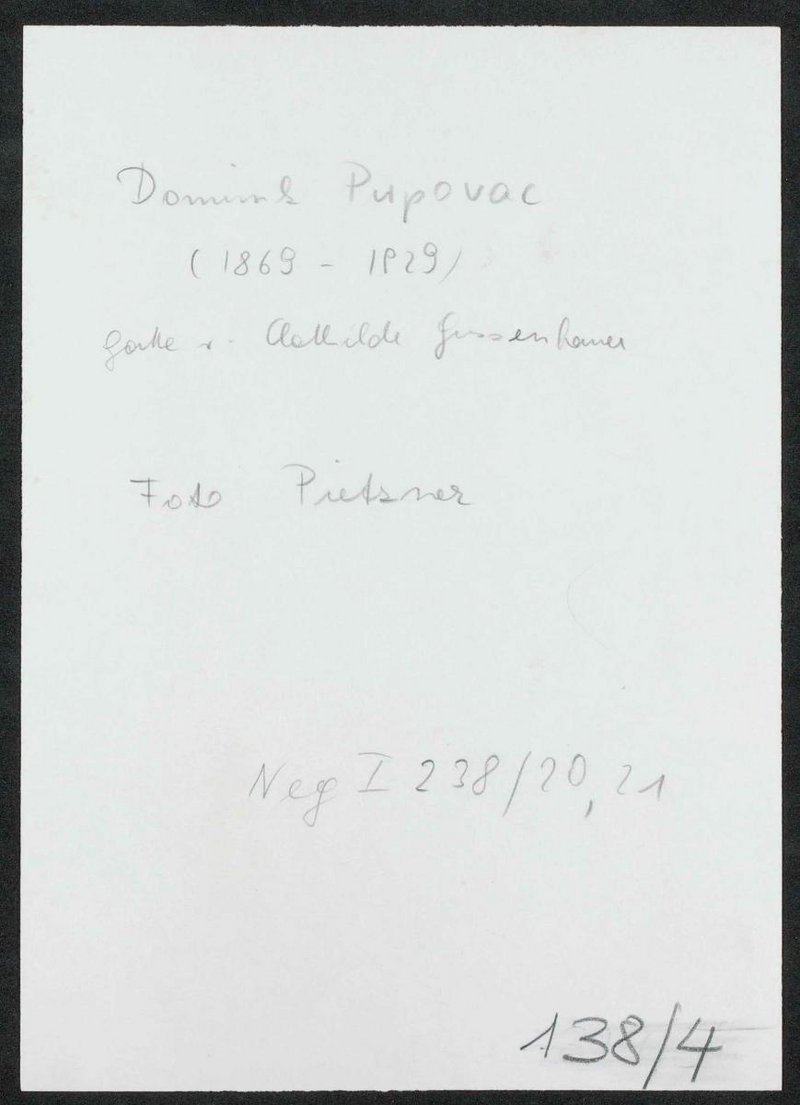 Dominik Pupovac
(1869 - 1929)
Gatte v. Mathilde Gussenbauer
Foto Pietzner
Neg I 238/20, 21
138/4